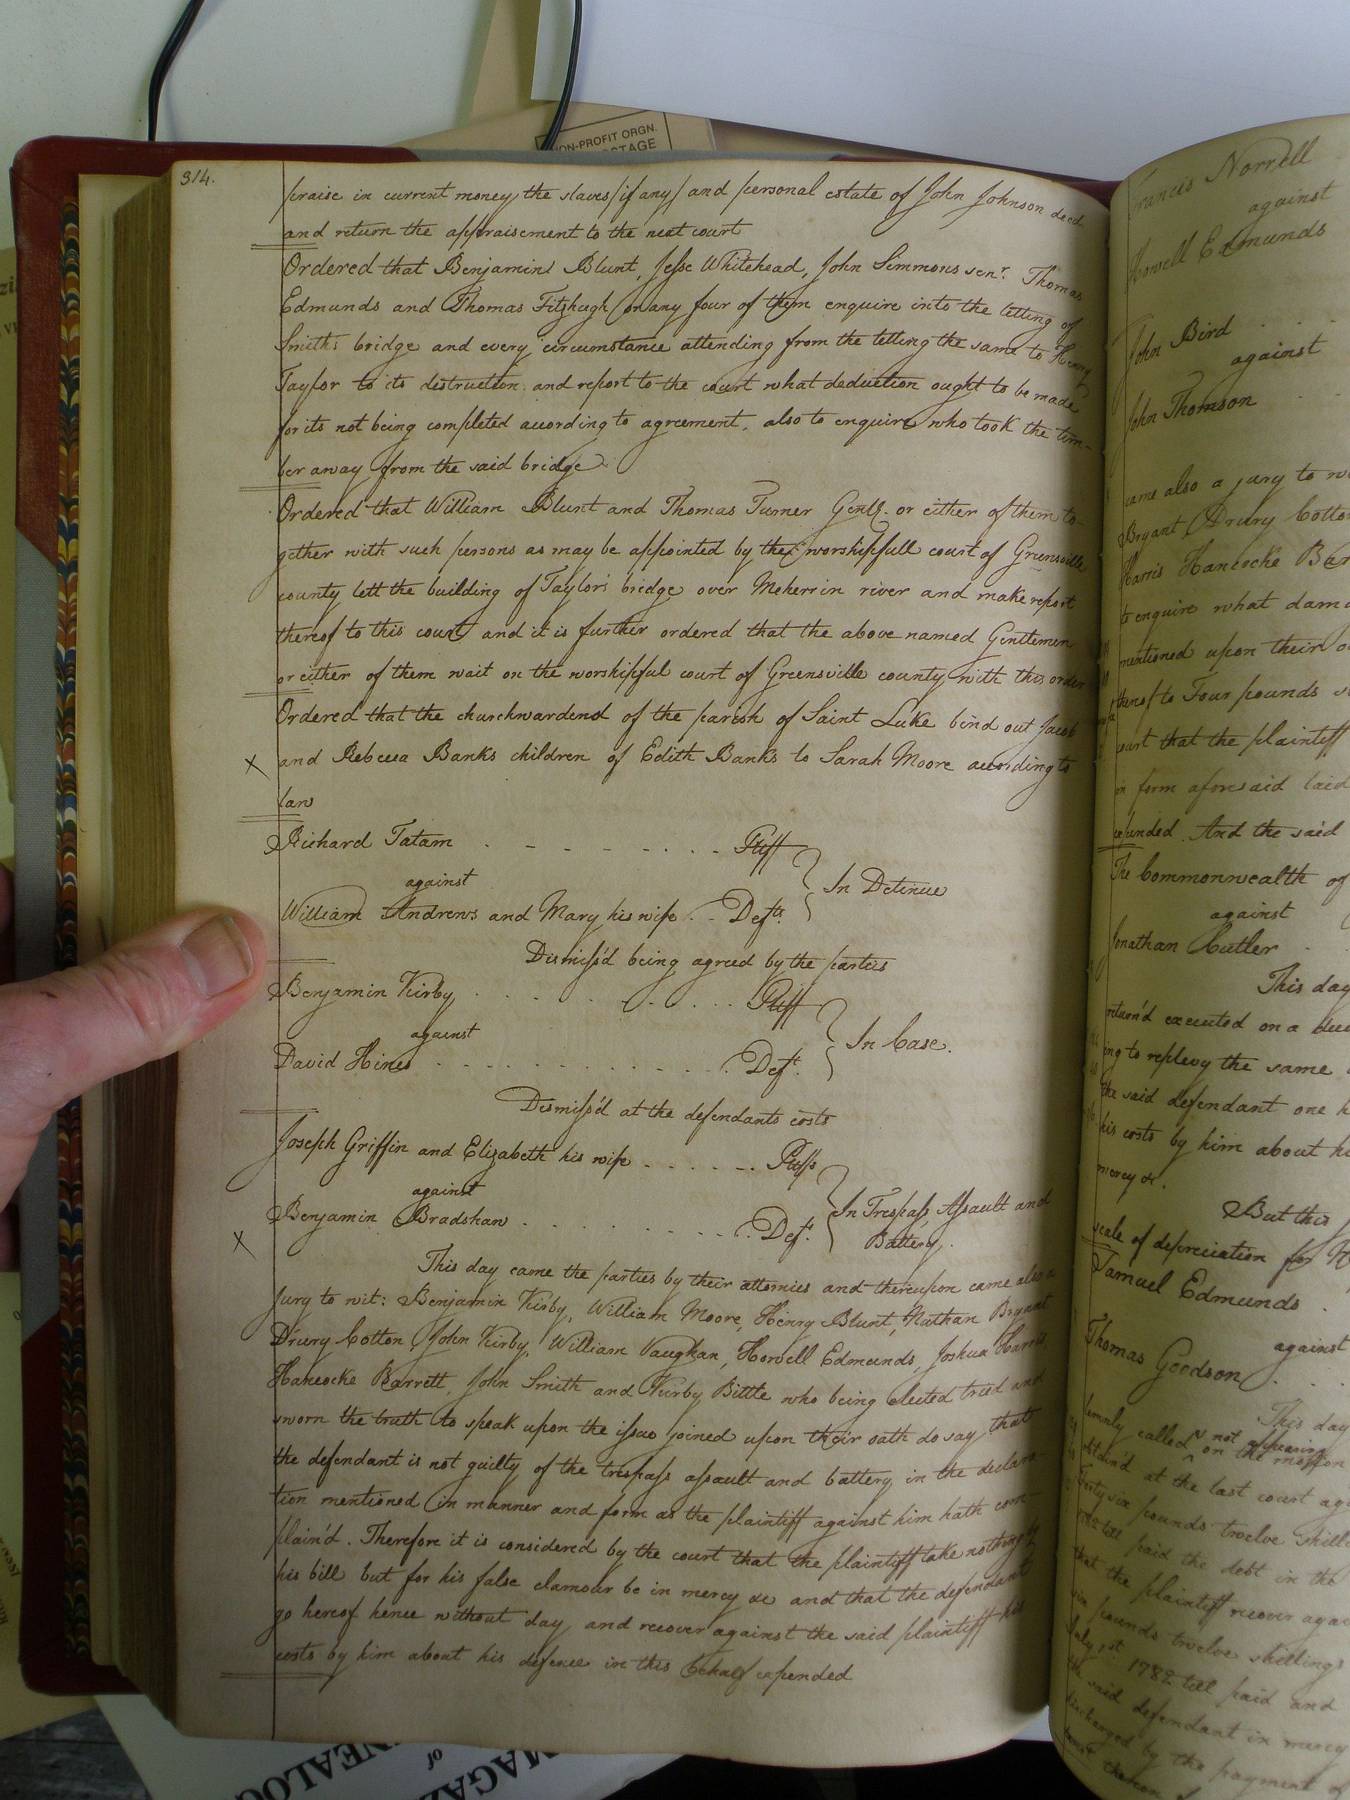 NON-PROFIT ORGN.
314.
praise in current money the slaves /if any/ and personal estate of John Johnson decd.
and return the appraisement to the next court
Ordered that Benjamin Blunt, Jesse Whitehead, John Simmons senr. Thomas
Edmunds and Thomas Fitzhugh or any four of them enquire into the letting of
Smith's bridge and every circumstance attending from the letting the same to Henry
Taylor to its destruction and report to the court what deduction ought to be made
for its not being completed according to agreement, also to enquire who took the tim-
ber away from the said bridge
Ordered that William Blunt and Thomas Turner Gentl. or either of them to-
gether with such persons as may be appointed by the worshipfull court of Greensville
county lett the building of Taylor's bridge over Meherrin river and make report
thereof to this court and it is further ordered that the above named Gentlemen
or either of them wait on the worshipful court of Greensville county with this order
Ordered that the churchwardens of the parish of Saint Luke bind out Jacob
x and Rebecca Banks children of Edith Banks to Sarah Moore according to
law
Richard Tatam . . . . . . . . Pltff
against
In Detinue
William Andrews and Mary his wife . . Defts.
Dismiss'd being agreed by the parties
Benjamin Kirby . . . . . . . . Pltff
against
In Case.
David Hines . . . . . . . . . . . Deft.
Dismiss'd at the defendants costs
Joseph Griffin and Elizabeth his wife . . . . . . Pltffs
against
x Benjamin Bradshaw . . . . . . . . . Deft. In Trespass, Assault and
Battery.
This day came the parties by their attornies and thereupon came also a
jury to wit: Benjamin Kirby, William Moore, Henry Blunt, Nathan Bryant
Drury Cotton, John Kirby, William Vaughan, Howell Edmunds, Joshua Harris,
Hancocke Barrett, John Smith and Kirby Bittle who being elected tried and
sworn the truth to speak upon the issue joined upon their oath do say that
the defendant is not guilty of the trespass assault and battery in the declara-
tion mentioned in manner and form as the plaintiff against him hath com-
plain'd. Therefore it is considered by the court that the plaintiff take nothing by
his bill but for his false clamour be in mercy &c and that the defendant
go hereof hence without day and recover against the said plaintiff his
costs by him about his defence in this behalf expended
Francis Norrell
against
Howell Edmunds
John Bird
against
John Thomson
came also a jury to
Bryant Drury Cotton
Harris Hancocke
to enquire what
mentioned upon their
thereof to Four pounds
court that the plaintiff
in form aforesaid laid
expended. And the said
The Commonwealth of
against
Jonathan Cutler
This day
return'd executed on a
ing to replevy the same
the said defendant one
his costs by him about
mercy &c.
But this
scale of depreciation for
Samuel Edmunds
against
Thomas Goodson
This day
lemnly called not appearing
on the motion
obtain'd at the last court
thirty six pounds twelve
till paid the debt in the
that the plaintiff recover
six pounds twelve shillings
July 1st 1782 till paid and
the said defendant in mercy
discharged by the payment of
MAGAZ
of
NEALOG